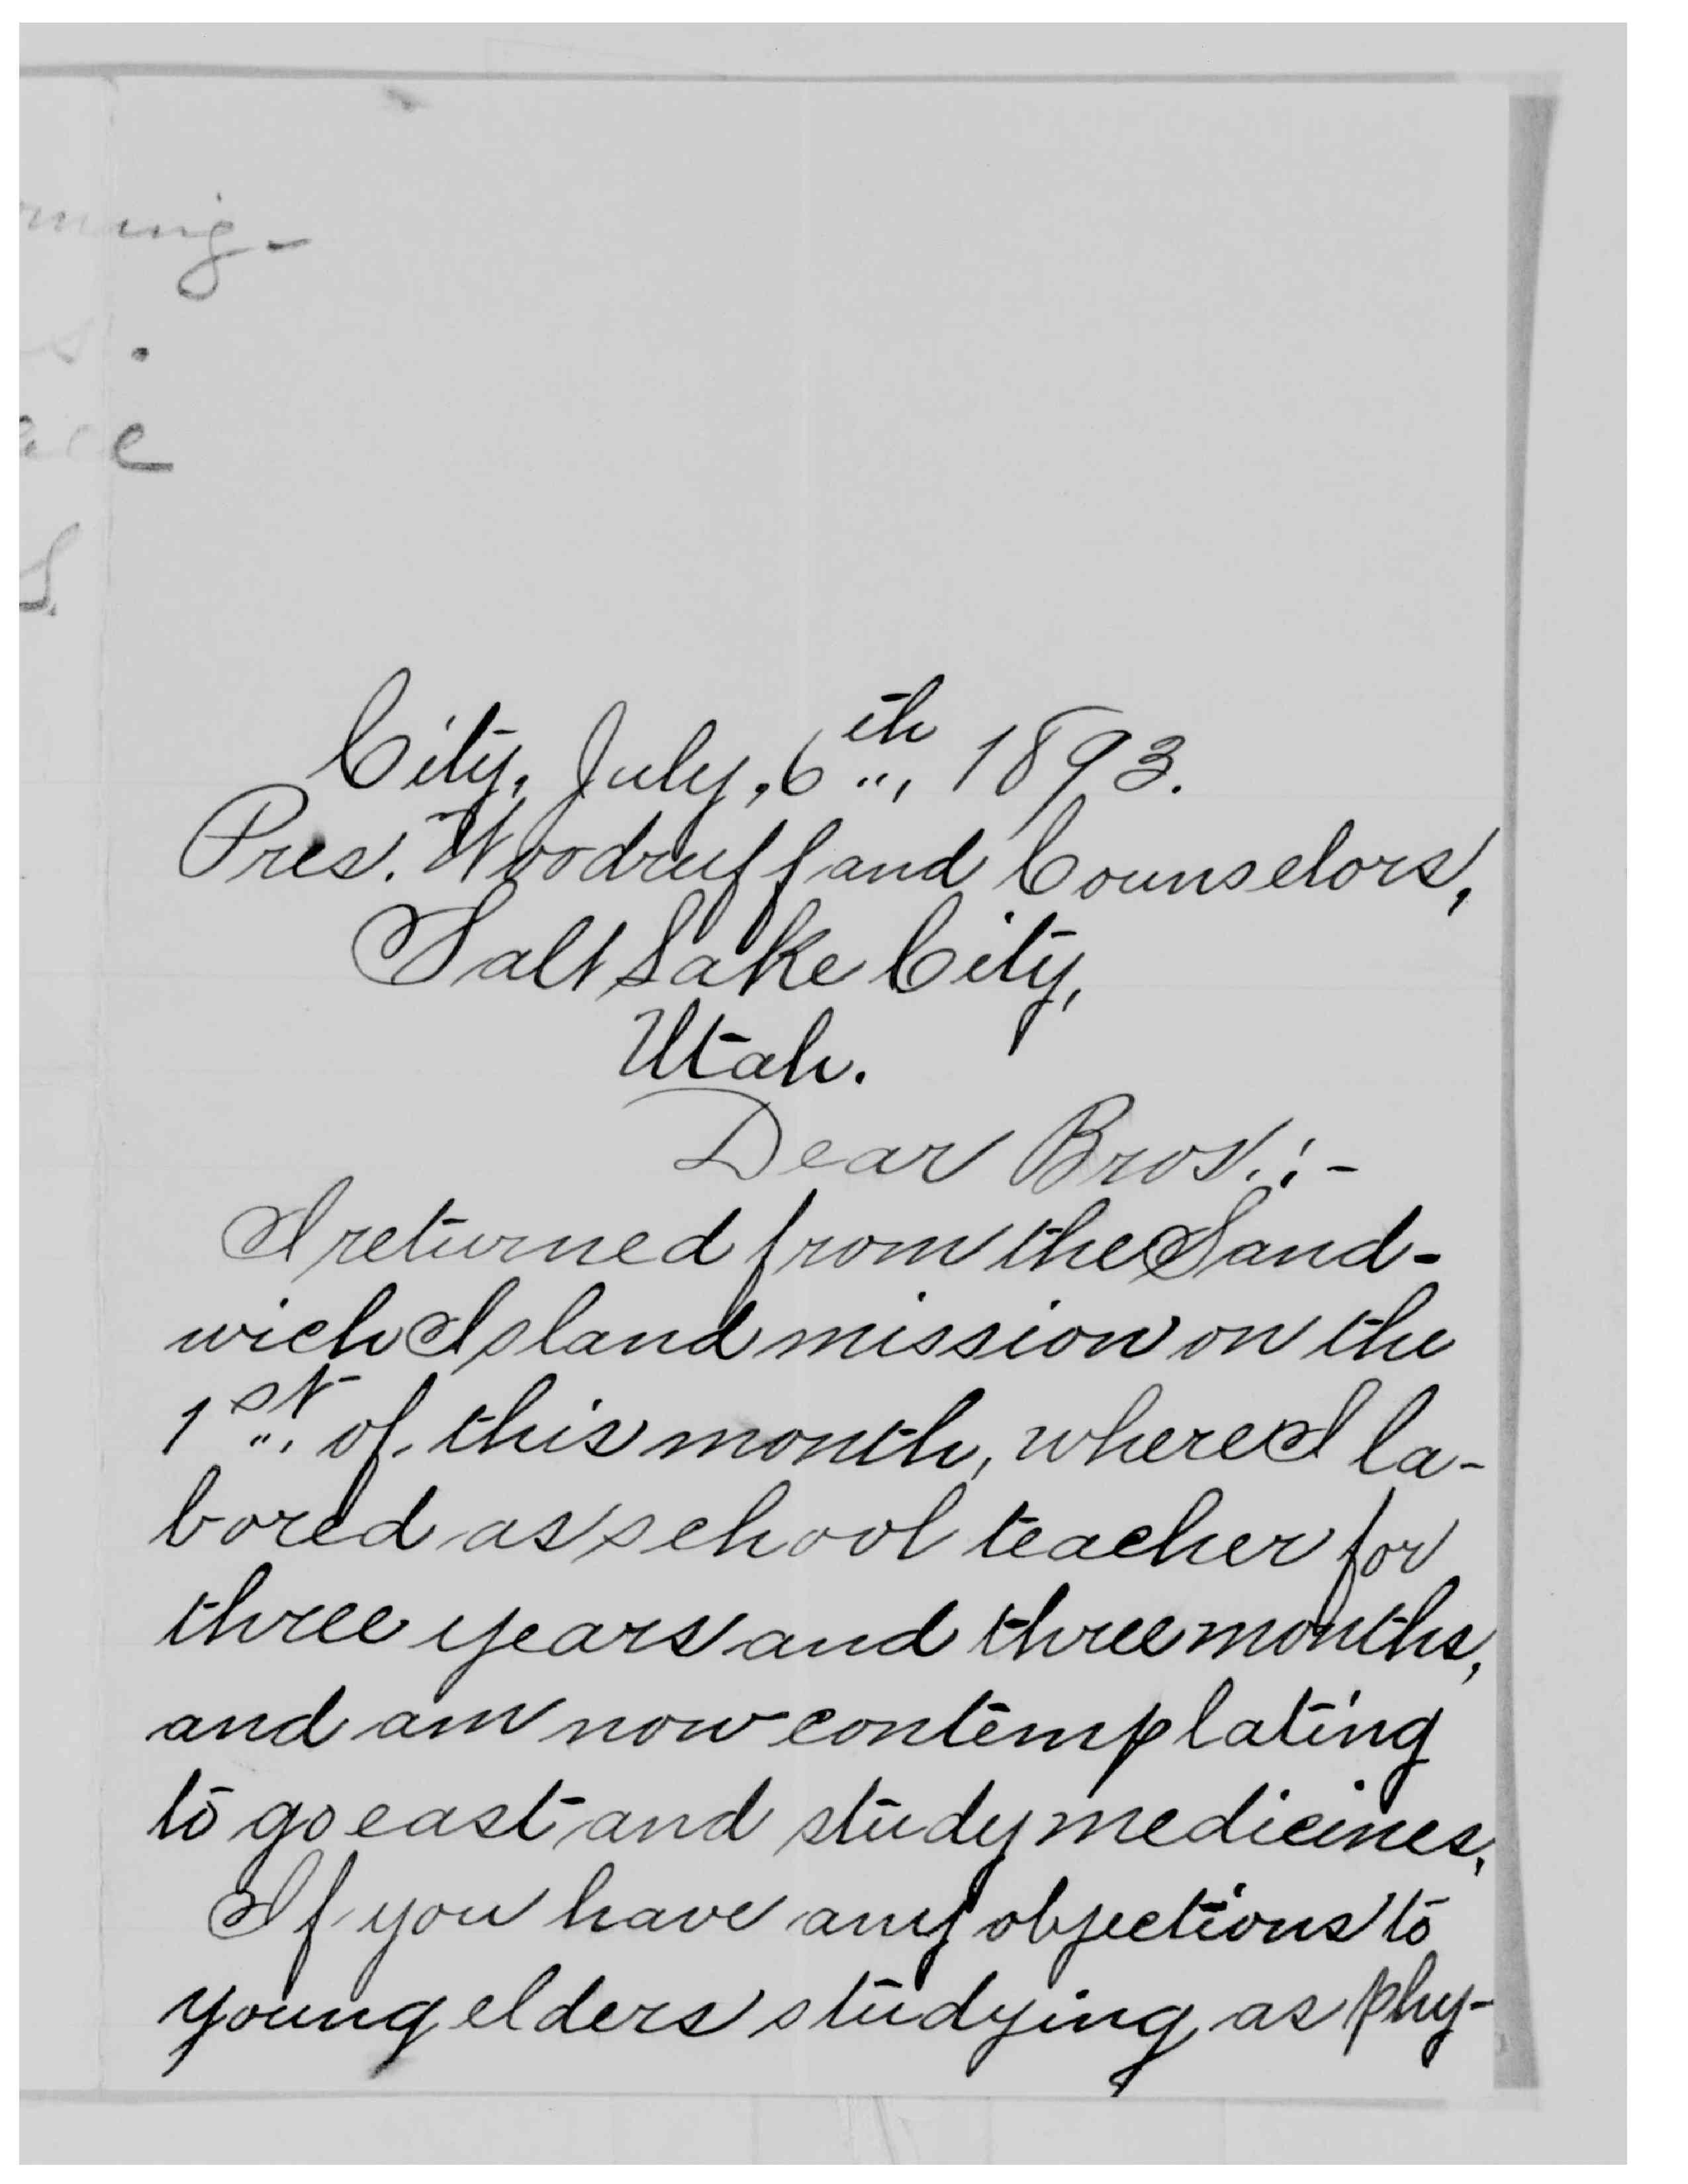 City, July, 6th, 1893.
Pres. Woodruff and Counselors,
Salt Lake City,
Utah.
Dear Bros.:-
I returned from the Sand-
wich Island mission on the
1st. of this month, where I la-
bored as school teacher for
three years and three months,
and am now contemplating
to go east and study medicines.
If you have any objections to
young elders studying as phy-